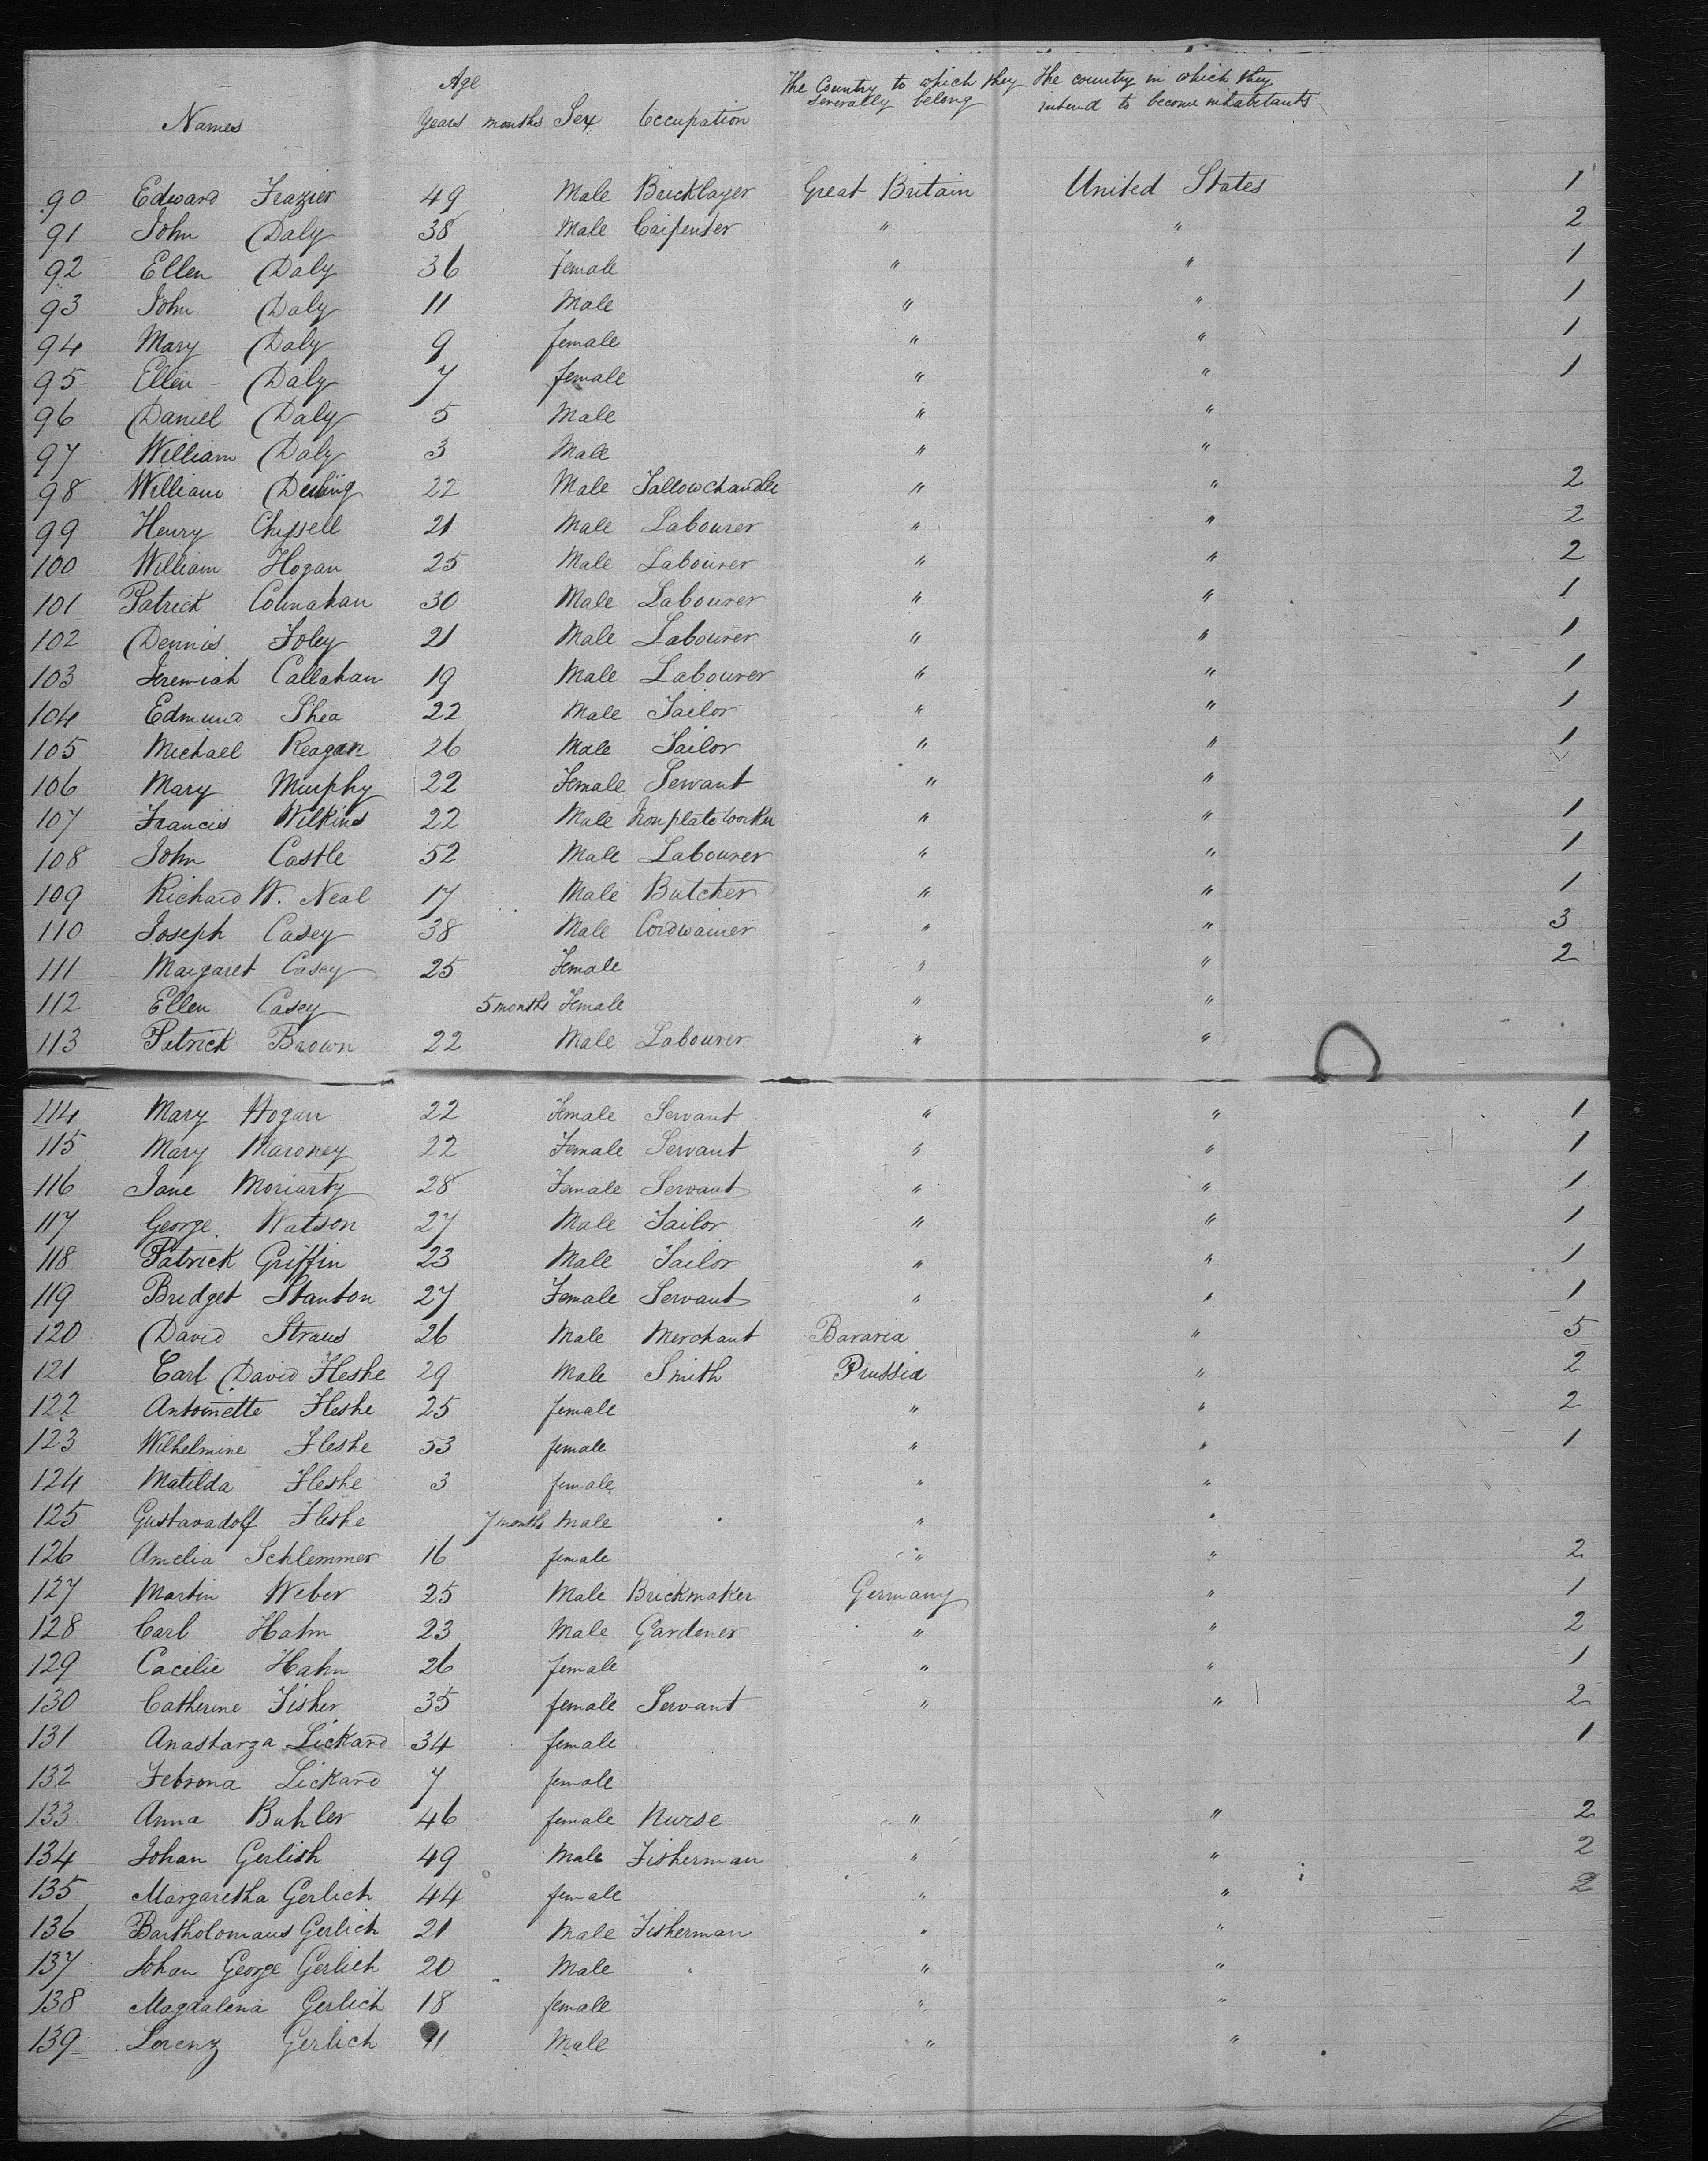 Age
The Country to which they The country in which they
severally belong intend to become inhabitants
Names Years months Sex Occupation
90 Edward Frazier 49 Male Bricklayer Great Britain United States 1
91 John Daly 38 Male Carpenter " " 2
92 Ellen Daly 36 female " " 1
93 John Daly 11 Male " " 1
94 Mary Daly 9 female " " 1
95 Ellen Daly 7 female " " 1
96 Daniel Daly 5 Male " "
97 William Daly 3 Male " "
98 William 22 Male Tallowchandler " " 2
99 Henry Chissell 21 Male Labourer " " 2
100 William Hogan 25 Male Labourer " " 2
101 Patrick 30 Male Labourer " " 1
102 Dennis Foley 21 Male Labourer " " 1
103 Jeremiah Callahan 19 Male Labourer " " 1
104 Edmund Shea 22 Male Tailor " " 1
105 Michael Reagan 26 Male Tailor " " 1
106 Mary Murphy 22 Female Servant " "
107 Francis Wilkins 22 Male Iron plate worker " " 1
108 John Castle 52 Male Labourer " " 1
109 Richard W. Neal 17 Male Butcher " " 1
110 Joseph Casey 38 Male Cordwainer " " 3
111 Margaret Casey 25 Female " " 2
112 Ellen Casey 5 months Female " "
113 Petrick Brown 22 Male Labourer " "
114 Mary Hogan 22 Female Servant " " 1
115 Mary Maroney 22 Female Servant " " 1
116 Jane Moriarty 28 Female Servant " " 1
117 George Watson 27 Male Tailor " " 1
118 Patrick Griffin 23 Male Tailor " " 1
119 Bridget Stanton 27 Female Servant " " 1
120 David Straus 26 Male Merchant Bavaria " 5
121 Carl David Fleshe 29 Male Smith Prussia " 2
122 Antoinette Fleshe 25 female " " 2
123 Wilhelmine Fleshe 53 female " " 1
124 Matilda Fleshe 3 female " "
125 Gustavadolf Fleshe 7 months Male " "
126 Amelia Schlemmer 16 female " " 2
127 Martin Weber 25 Male Brickmaker Germany " 1
128 Carl Hahn 23 Male Gardener " " 2
129 Cacilie Hahn 26 female " " 1
130 Catherine Fisher 35 female Servant " " 2
131 Anastarza Lickard 34 female 1
132 Febrona Lickard 7 female
133 Anna Buhler 46 female Nurse " " 2
134 Johan Gerlish 49 Male Fisherman " " 2
135 Margaretha Gerlich 44 female " " 2
136 Bartholomaus Gerlich 21 Male Fisherman " "
137 Johan George Gerlich 20 Male " "
138 Magdalena Gerlich 18 female " "
139 Lorenz Gerlich 11 Male " "